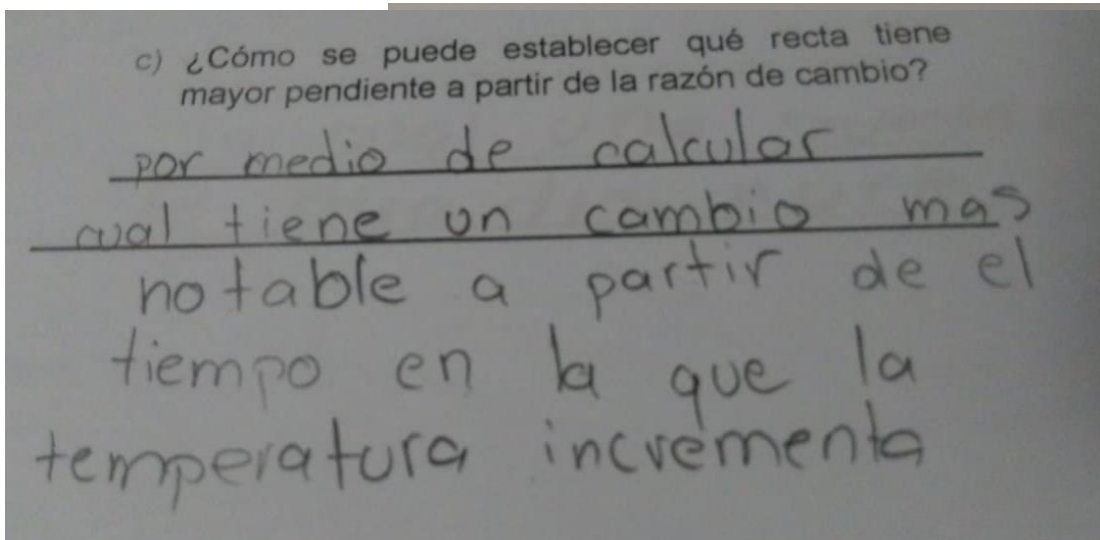 c) ¿Cómo se puede establecer qué recta tiene
mayor pendiente a partir de la razón de cambio?
por medio de calcular
cual tiene un cambio mas
notable a partir de el
tiempo en la que la
temperatura incrementa